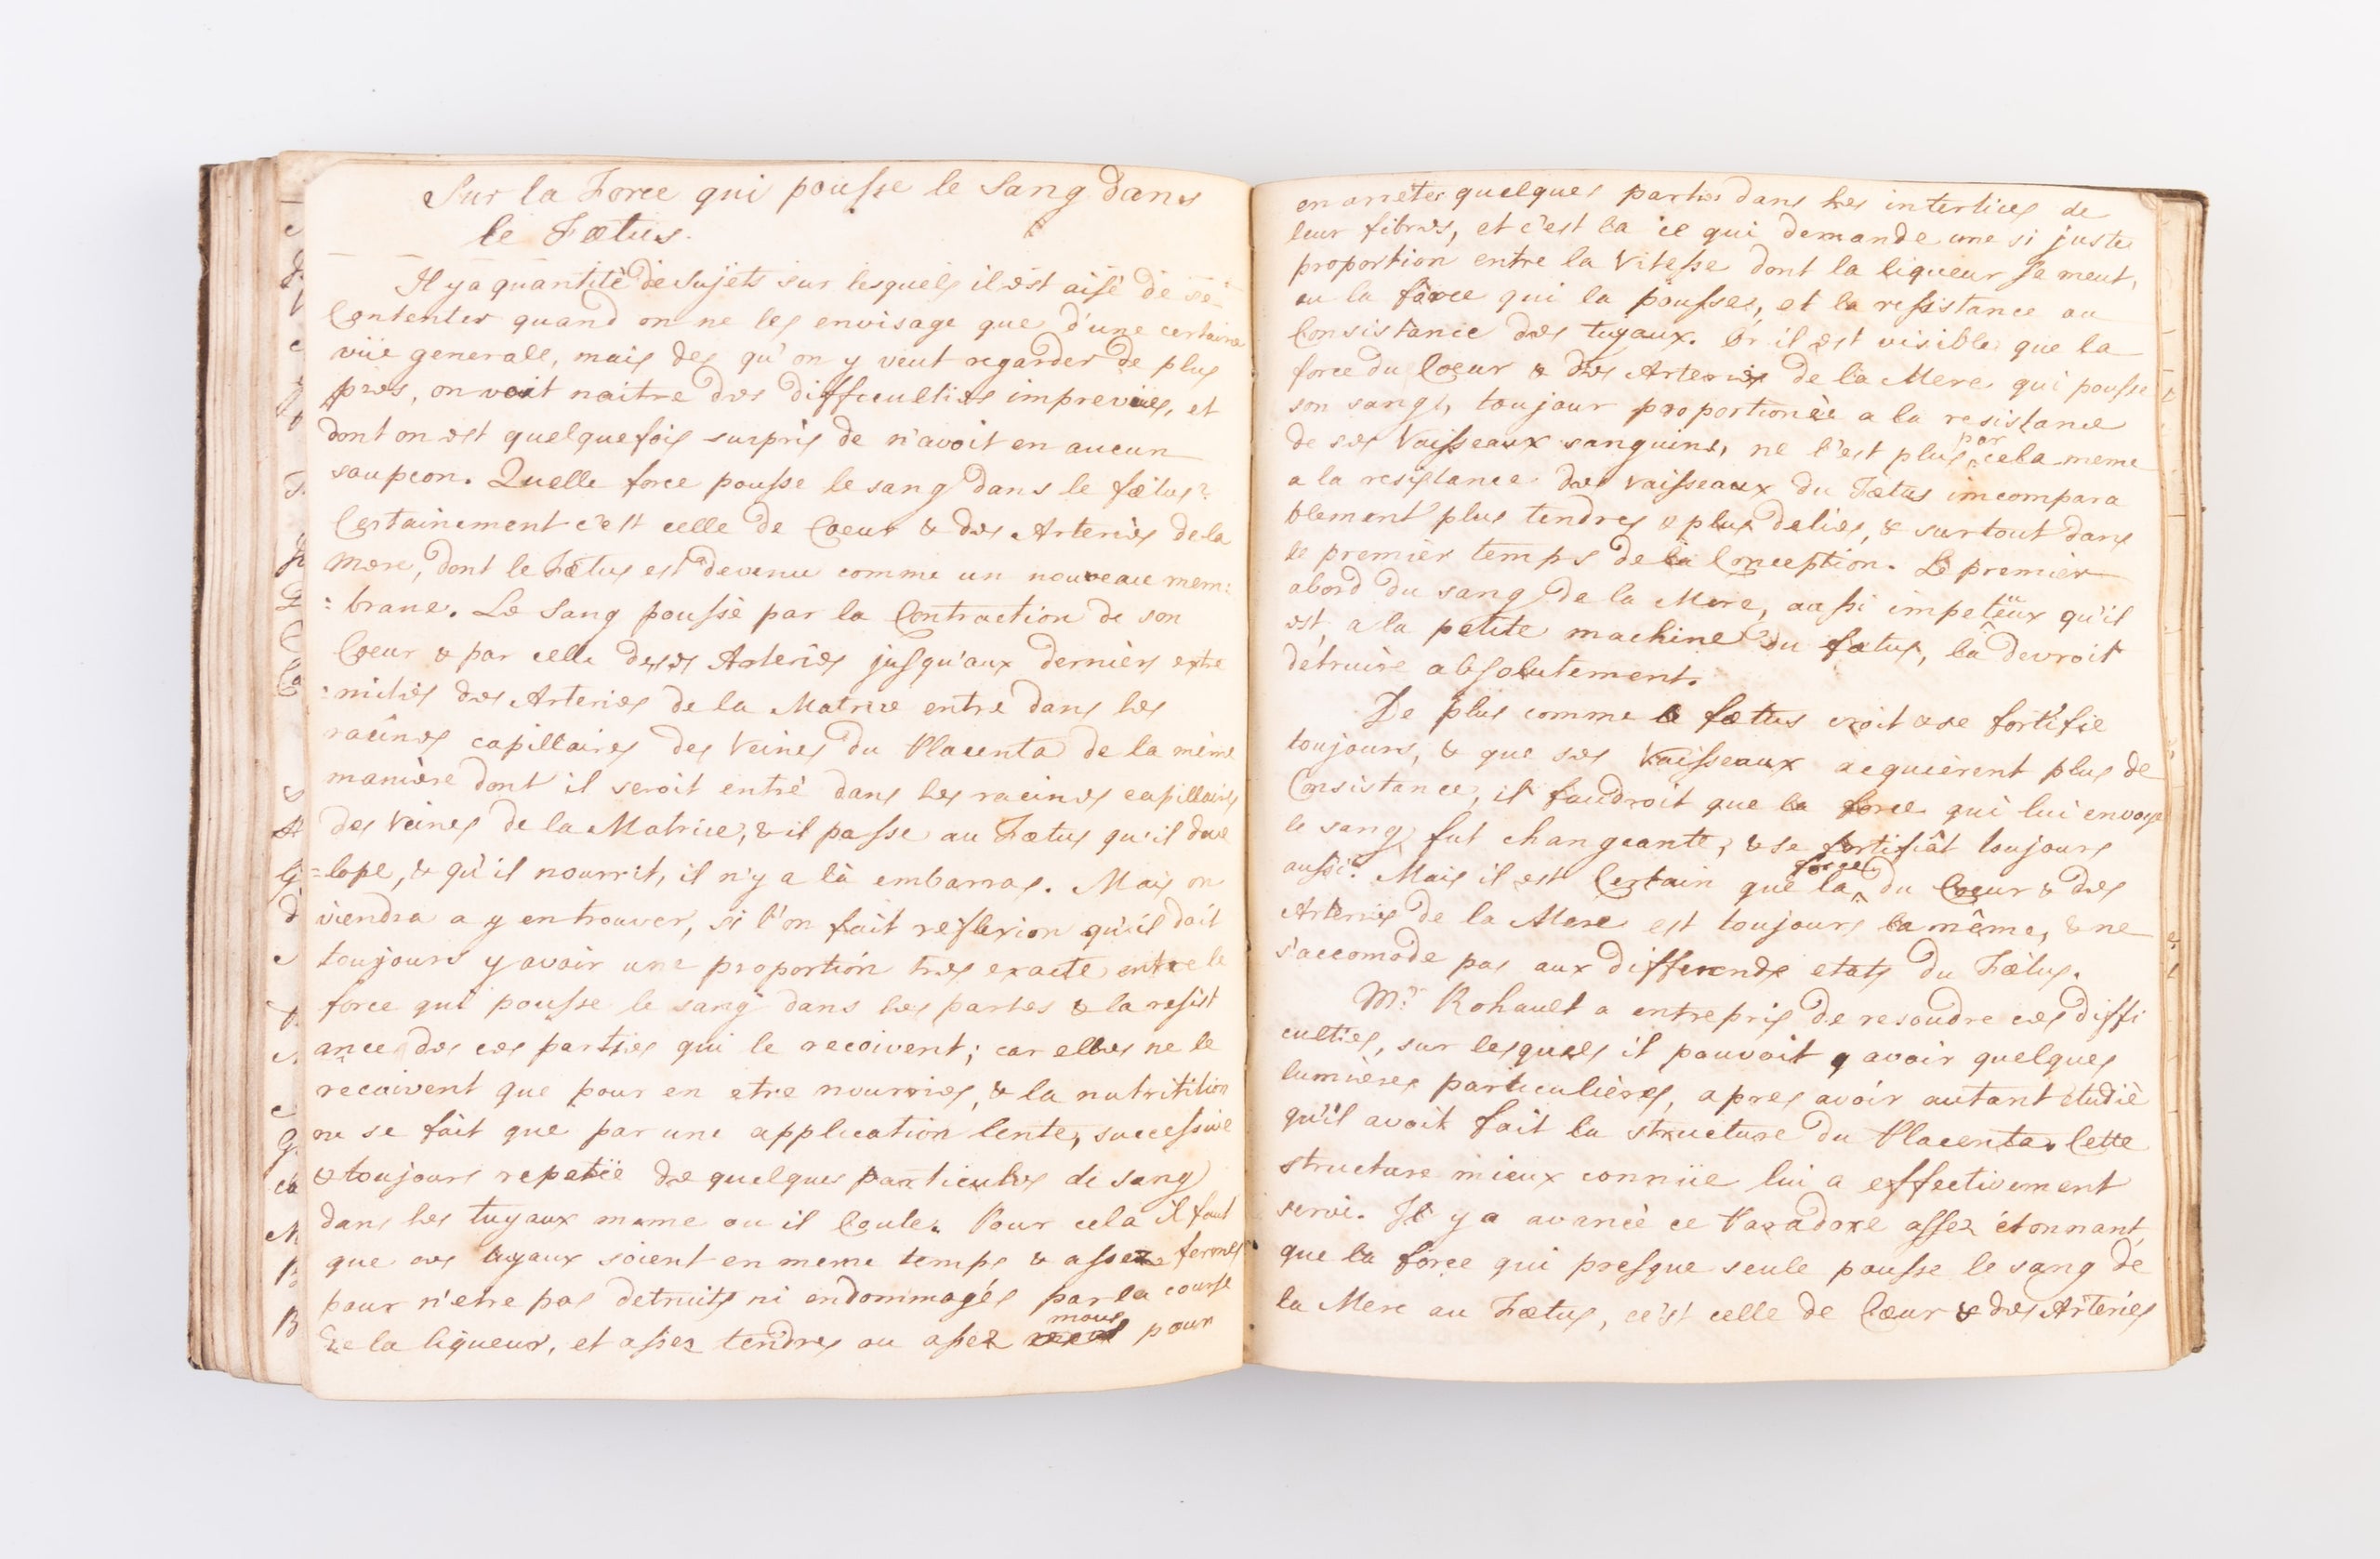 Sur la Force qui pousse le Sang dans
le Fœtus.
Il y a quantité de sujets sur lesquels il est aisé de se
Contenter quand on ne les envisage que d'une certaine
vüe generale, mais des qu'on y veut regarder de plus
pres, on voit naitre des difficultiés imprevües, et
dont on est quelquefois surpris de n'avoit en aucun
soupcon. Quelle force pousse le sang dans le fœtus?
Certainement c'est celle de Coeur & des Arteries de la
mere, dont le Fœtus est devenu comme un nouveau mem:
: brane. Le Sang poussè par la Contraction de son
Coeur & par celle de ses Arteries jusqu'aux derniers extre
: mitiés des Arteries de la Matrice entre dans les
racînes capillaires des Veines du Placenta de la même
manière dont il seroit entré dans les racines capillaires
des Veines de la Matrice, & il passe au Fœtus qu'il deve
=lope, & qu'il nourrit, il n'y a là embarras. Mais on
viendra a y en trouver, si l'on fait reflexion qu'il doit
toujours y avoir une proportion tres exacte entre le
force qui pousse le sang dans les parties & la resist
ance des ces parties qui le recoivent; car elles ne le
recoivent que pour en etre nourries, & la nutritition
ne se fait que par une application lente, successive
& toujours repetïe de quelques particules de sang
dans les tuyaux meme ou il Coule. Pour cela il faut
que ces tuyaux soient en meme temps & assez fermes
pour n'etre pas detruits ni endommagés par la course
de la liqueur, et assez tendres ou assez mous pour
en arreter quelques parties dans les intertices de
leur fibres, et c'est la ce qui demande une si juste
proportion entre la Vitesse dont la liqueur se meut,
ou la force qui la pousse, et la ressistance ou
Consistance des tuyaux. Or il est visible que la
force du Coeur & des Arteries de la Mere qui pousse
son sang, toujour proportionèe a la resistance
de ses Vaisseaux sanguins, ne l'est plus par cela meme
a la resistance des vaisseaux du Fœtus imcompara
blement plus tendres & plus delies, & surtout dans
le premier temps de la Conception. Le premier
abord du sang de la Mere, aussi impetüeux qu'il
est, a la petite machine du fœtus, la devroit
detruire absolutement.
De plus comme le fœtus croit & se fortifie
toujours, & que ses Vaisseaux acquièrent plus de
Consistance, il faudroit que la force qui lui envoye
le sang fut changeante, & se fortifiât toujours
aussi. Mais il est Certain que la force du Coeur & des
Arteries de la Mere est toujours la même, & ne
s'accomode pas aux differends etats du Fœtus.
Mr. Rohault a entrepris de resoudre ces diffi
culties, sur lesquels il pouvoit y avoir quelques
lumières particulières, apres avoir autant étudiè
qu'il avoit fait la structure du Placenta. Cette
structure mieux connüe lui a effectivement
servi. Il y a avancè ce Paradoxe assez étonnant,
que la force qui presque seule pousse le sang de
la Mere au Fœtus, ce'st celle de Cœur & des Arteries